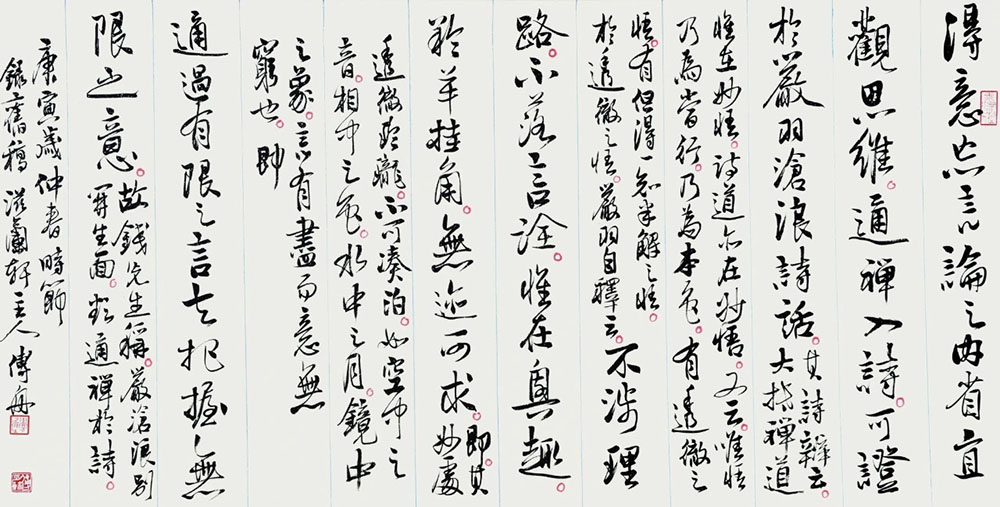 得意忘言論之內省直
觀思維。通禪入詩。可證
於嚴羽滄浪詩話。其詩辯云。
大抵禪道
惟在妙悟。詩道亦在妙悟。又云。唯悟
乃為當行。乃為本色。有透徹之
悟。有但得一知半解之悟。
於透徹之悟。嚴羽自釋云。不涉理
路。不落言詮。惟在興趣。
羚羊挂角。無迹可求。即其
妙處
透徹玲瓏。不可凑泊。如空中之
音。相中之色。水中之月。鏡中
之象。言有盡而意無
窮也。即
通過有限之言去把握無
限之意。故錢先生稱。嚴滄浪別
開生面。打通禪於詩。
庚寅歲仲春時節
錄舊稿 滋蘭軒主人 傅舟